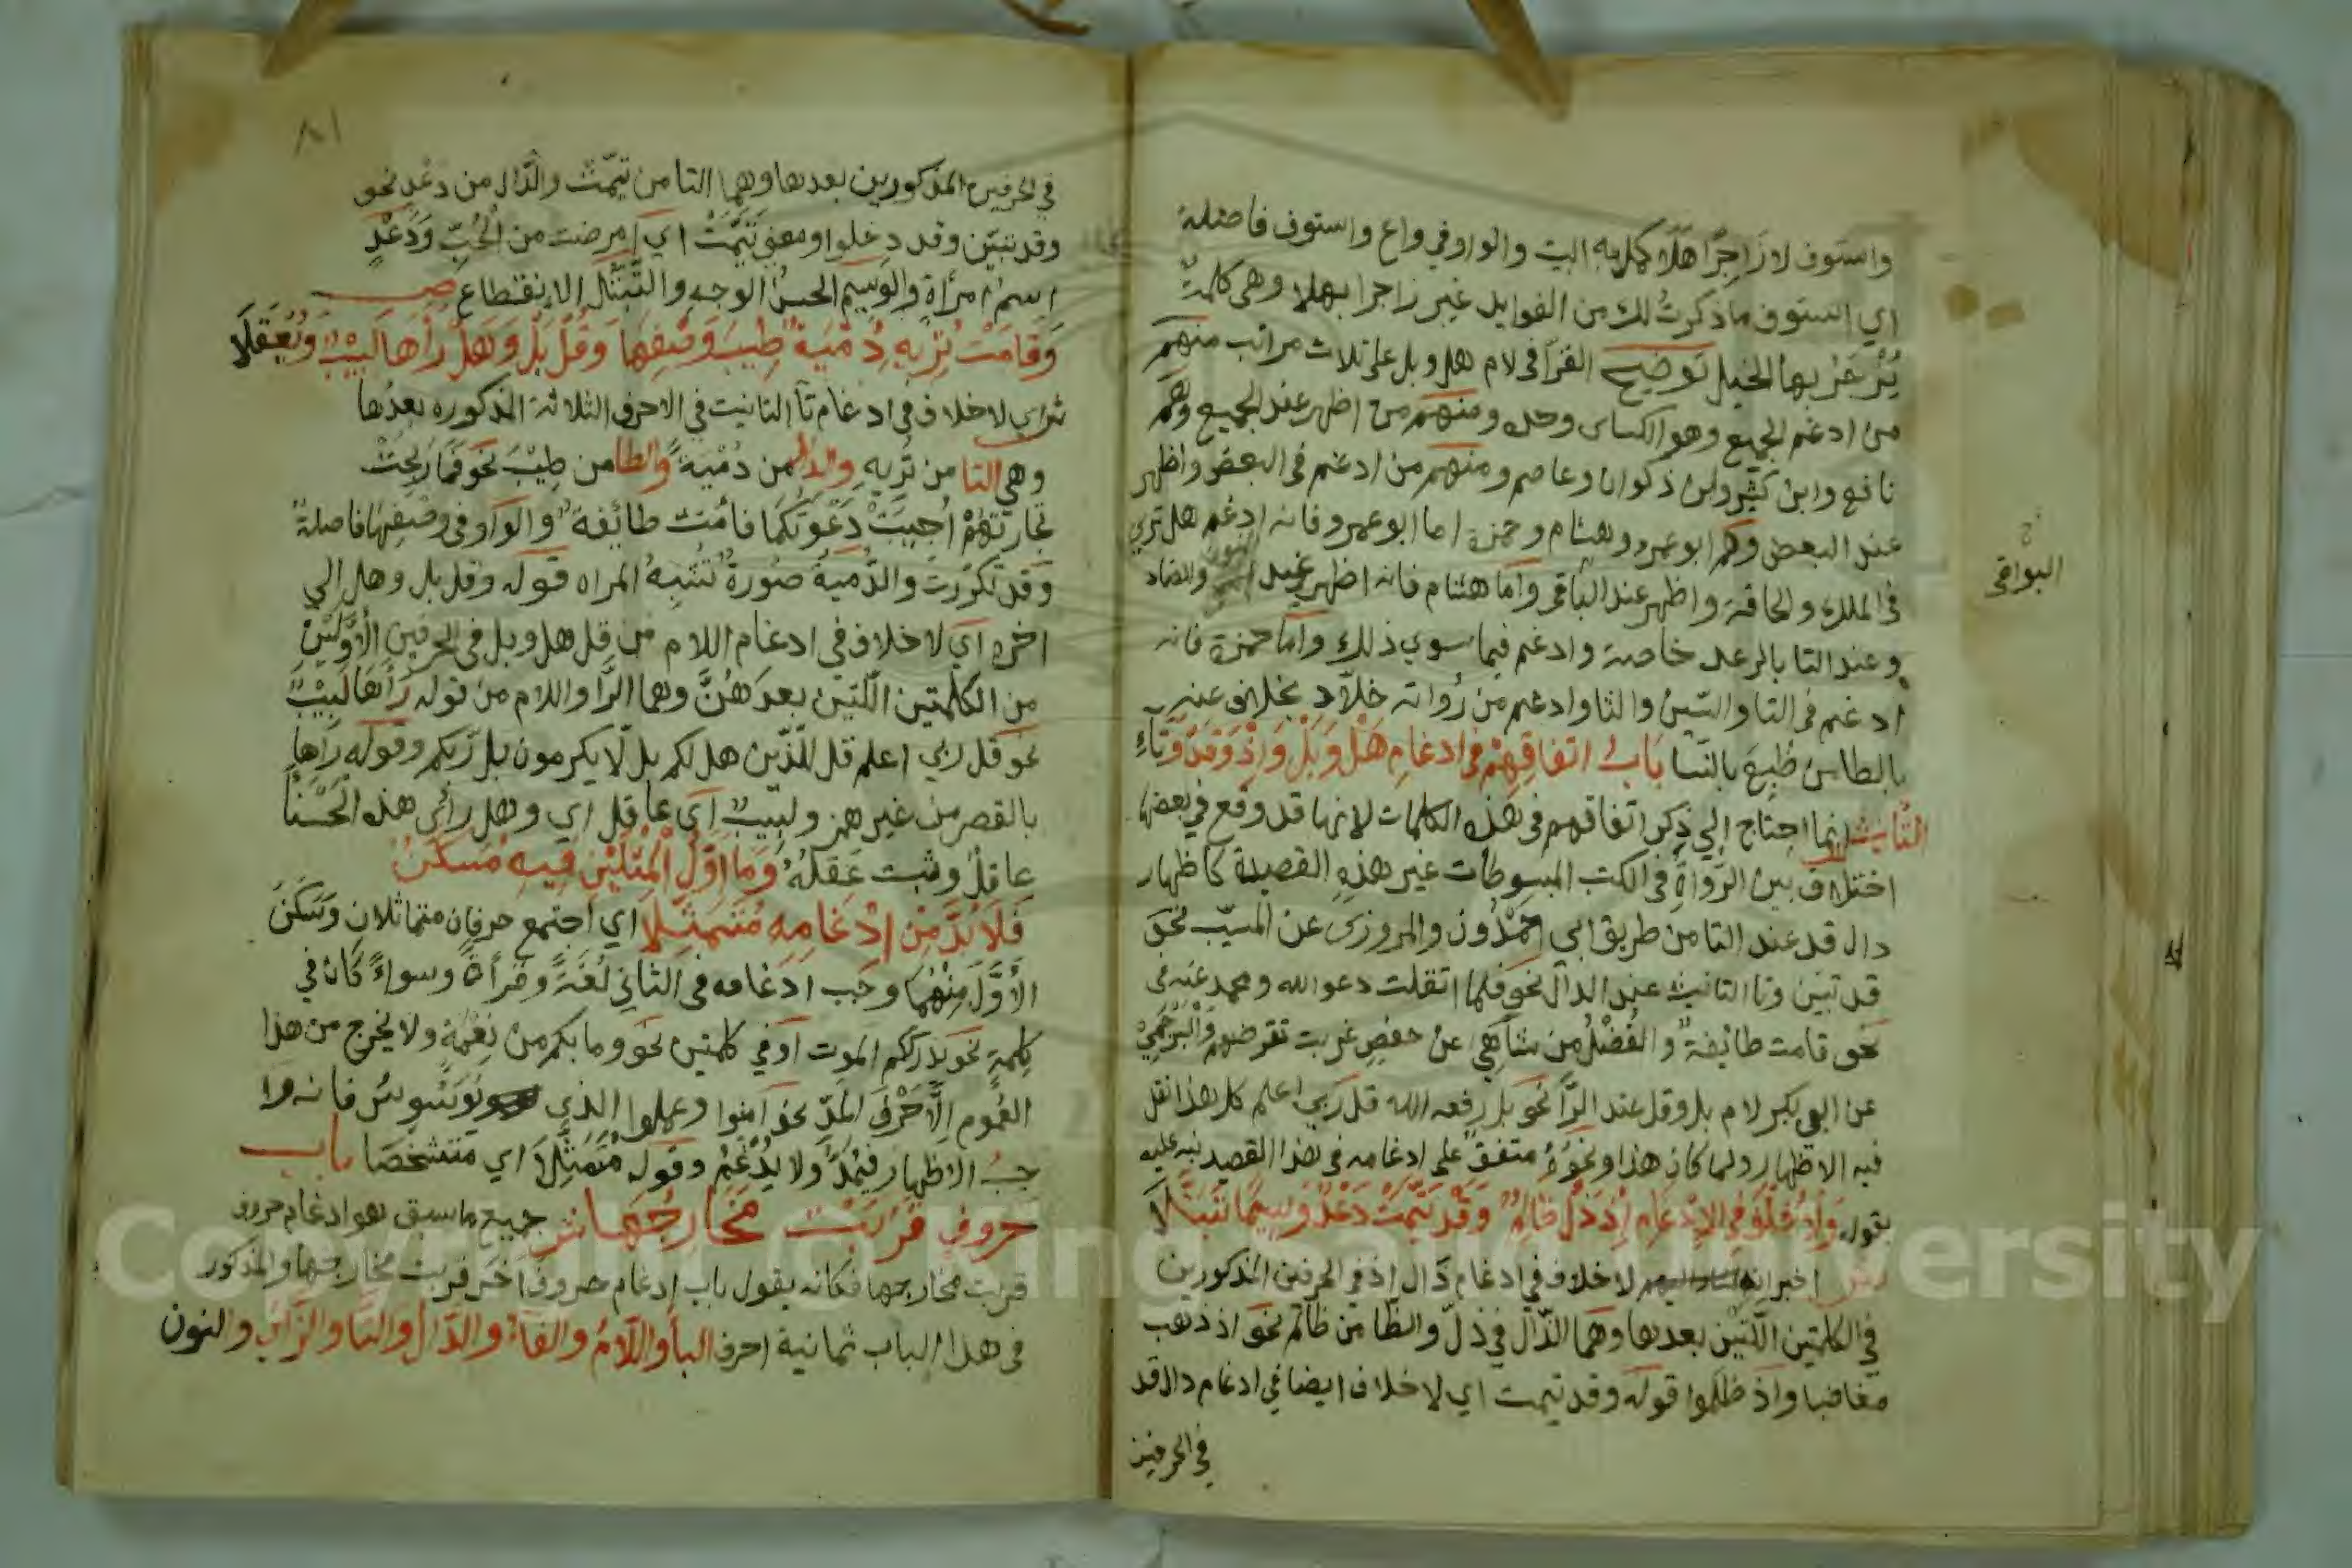 واستوف لا زَاجِرًا هَلَا كمل به البيت والواو في واع واستوف فاصلة
اي استوف ما ذكرتُ لك من الفوايد غير زاجرا بهلا وهي كلمة
يُزْجَرُ بها الخيل توضيح القرّا في لام هل وبل على ثلاث مراتب منهم
من ادغم الجميع وهو الكساى وحده ومنهم من اظهر عند الجميع وهم
نافع وابن كثير وابن ذكوان وعاصم ومنهم من ادغم في البعض واظهر
عند البعض وهم ابو عمرو وهشام وحمزة اما ابو عمرو فانه ادغم هل تري
في الملك والحاقة واظهر عند الباقي واما هشام فانه اظهر عند النون والضاد
البواقي
وعند التا بالرعد خاصة وادغم فيما سوي ذلك واما حمزة فانه
ادغم في التا والسّين والثا وادغم من رُواته خلّاد بخلاف عنه
بالطاس طبع بالنسا بَابُ اتفاقهِمْ في ادغام هَلْ وَبَلْ وَاِذْ وَقَدْ وَتَاءِ
التأنيث انما احتاج إلي ذكر اتفاقهم في هذه الكلمات لانها قد وقع في بعضها
اختلاف بين الرّواة في الكتب المبسوطات غير هذه القصيدة كاظهار
دال قد عند التا من طريق ابي حَمْدُون والمروزي عن المسيّب نحو
قد تبين وتا التانيث عند الدال نحو فلما اثقلت دعوا الله ومحمد عنه في
نحو قامت طائفةٌ والفَضْلُ من شاهي عن حفصٍ غربت تقرضهم والبُرْجُمِيّ
عن ابي بكر لام بل وقل عند الرّا نحو بل رفعه الله قل ربي اعلم كل هذا نقل
فيه الاظهار ولما كان هذا ونحوُهُ متفقٌ على ادغامه في هذا القصيد نبه عليه
بقوله وَلاَ خُلْفَ في الاِدْغَامِ إِذْ ذَلَّ ظَالِمٌ وَقَدْ تَيَّمَتْ دَعْدٌ وَسِيمًا تَبَتَّلَا
ش اخبر انه لا خلاف في ادغام ذال اذ في الحرفين المذكورين
في الكلمتين اللّتين بعدها وهما الذّال في ذلّ والظا من ظالم نحو اذ ذهب
مغاضبا واذ ظلموا قوله وقد تيمت اي لا خلاف ايضا في ادغام دال قد
في الحرفين
٨١
في الحرفين المذكورين بعدها وهما التا من تيّمت والدّال من دعد نحو
وقد تبيّن وقد دخلوا ومعني تَيَّمَتْ اي امرضت من الحُبّ وَدَعْدٍ
اسم امرأة والوسيم الحسن الوجه والتّبتّل الانقطاع ص
وَقَامَتْ تُرِيهِ دُمْيَةٌ طِيبَ وَصْفِهَا وَقُلْ بَلْ وَهَلْ رَاَهَا لَبِيْبٌ وَيَعْقِلَا
ش اي لا خلاف في ادغام تاَ التانيث في الاحرف الثلاثة المذكوره بعدها
وهي التا من تُريه والدال من دُمْيَةٌ والطا من طِيْبَ نحو فما ربحت
تجارتهُمْ اُجِيبَتْ دَعْوَتُكُمَا فامنت طائفةٌ والواو في وصفها فاصلةٌ
وقد تكرّرت والدُّميةُ صُورةٌ تُشْبِهُ المراه قوله وقل بل وهل الي
اخره اي لا خلاف في ادغام اللام من قل هل وبل في الحرفين الأَوّلَيْن
من الكلمتين اللّتين بعدَهُنَّ وهما الرَّا واللام من قوله رَاَهَا لَبِيْبٌ
نحو قل ربي اعلم قل للّذين هل لكم بل لّا يكرمون بل رّبكم وقوله رَاَها
بالقصر من غير همز ولبيبٌ اَى عاقل اي وهل رأى هذه الْحَسْنَا
عاقلٌ وثبت عَقلُهُ وَمَا اَوّلُ الْمِثْلَيْنِ فِيهِ مُسَكَّنٌ
فَلاَ بُدَّ مِنْ اِدْغَامِهِ مُتَمَثِّلَا اي اجتمع حرفان متماثلان وَسَكَنَ
الأَوّلَ مِنْهُمَا وجب ادغامه في الثاني لُغَةً وقرأةً وسواءً كان في
كلمةٍ نحو يدرككم الموت اَوْ في كلمتين نحو وما بكم من نِعْمَةٍ ولا يخرج من هذا
العُموم اِلاّ حَرْفَى المَدّ نحو امنوا وعملوا الذي يُوَسْوِسُ فانه وا
جبُ الاظهار فيُمَدُّ ولا يُدْغَمْ وقوله مُتَمَثِّلاَ اي متشخّصا باب
حروف قَرُبَتْ مَخَارِجُهَا ش جميع ما سبق هو ادغام حروف
قربت مخارجها فكانه يقول باب ادغام حروف اُخَر قربت مخارجها والمذكور
في هذا الباب ثمانية احرف الباَ واللّامُ والفَاءُ والدّال والثا والرّاَ والنون